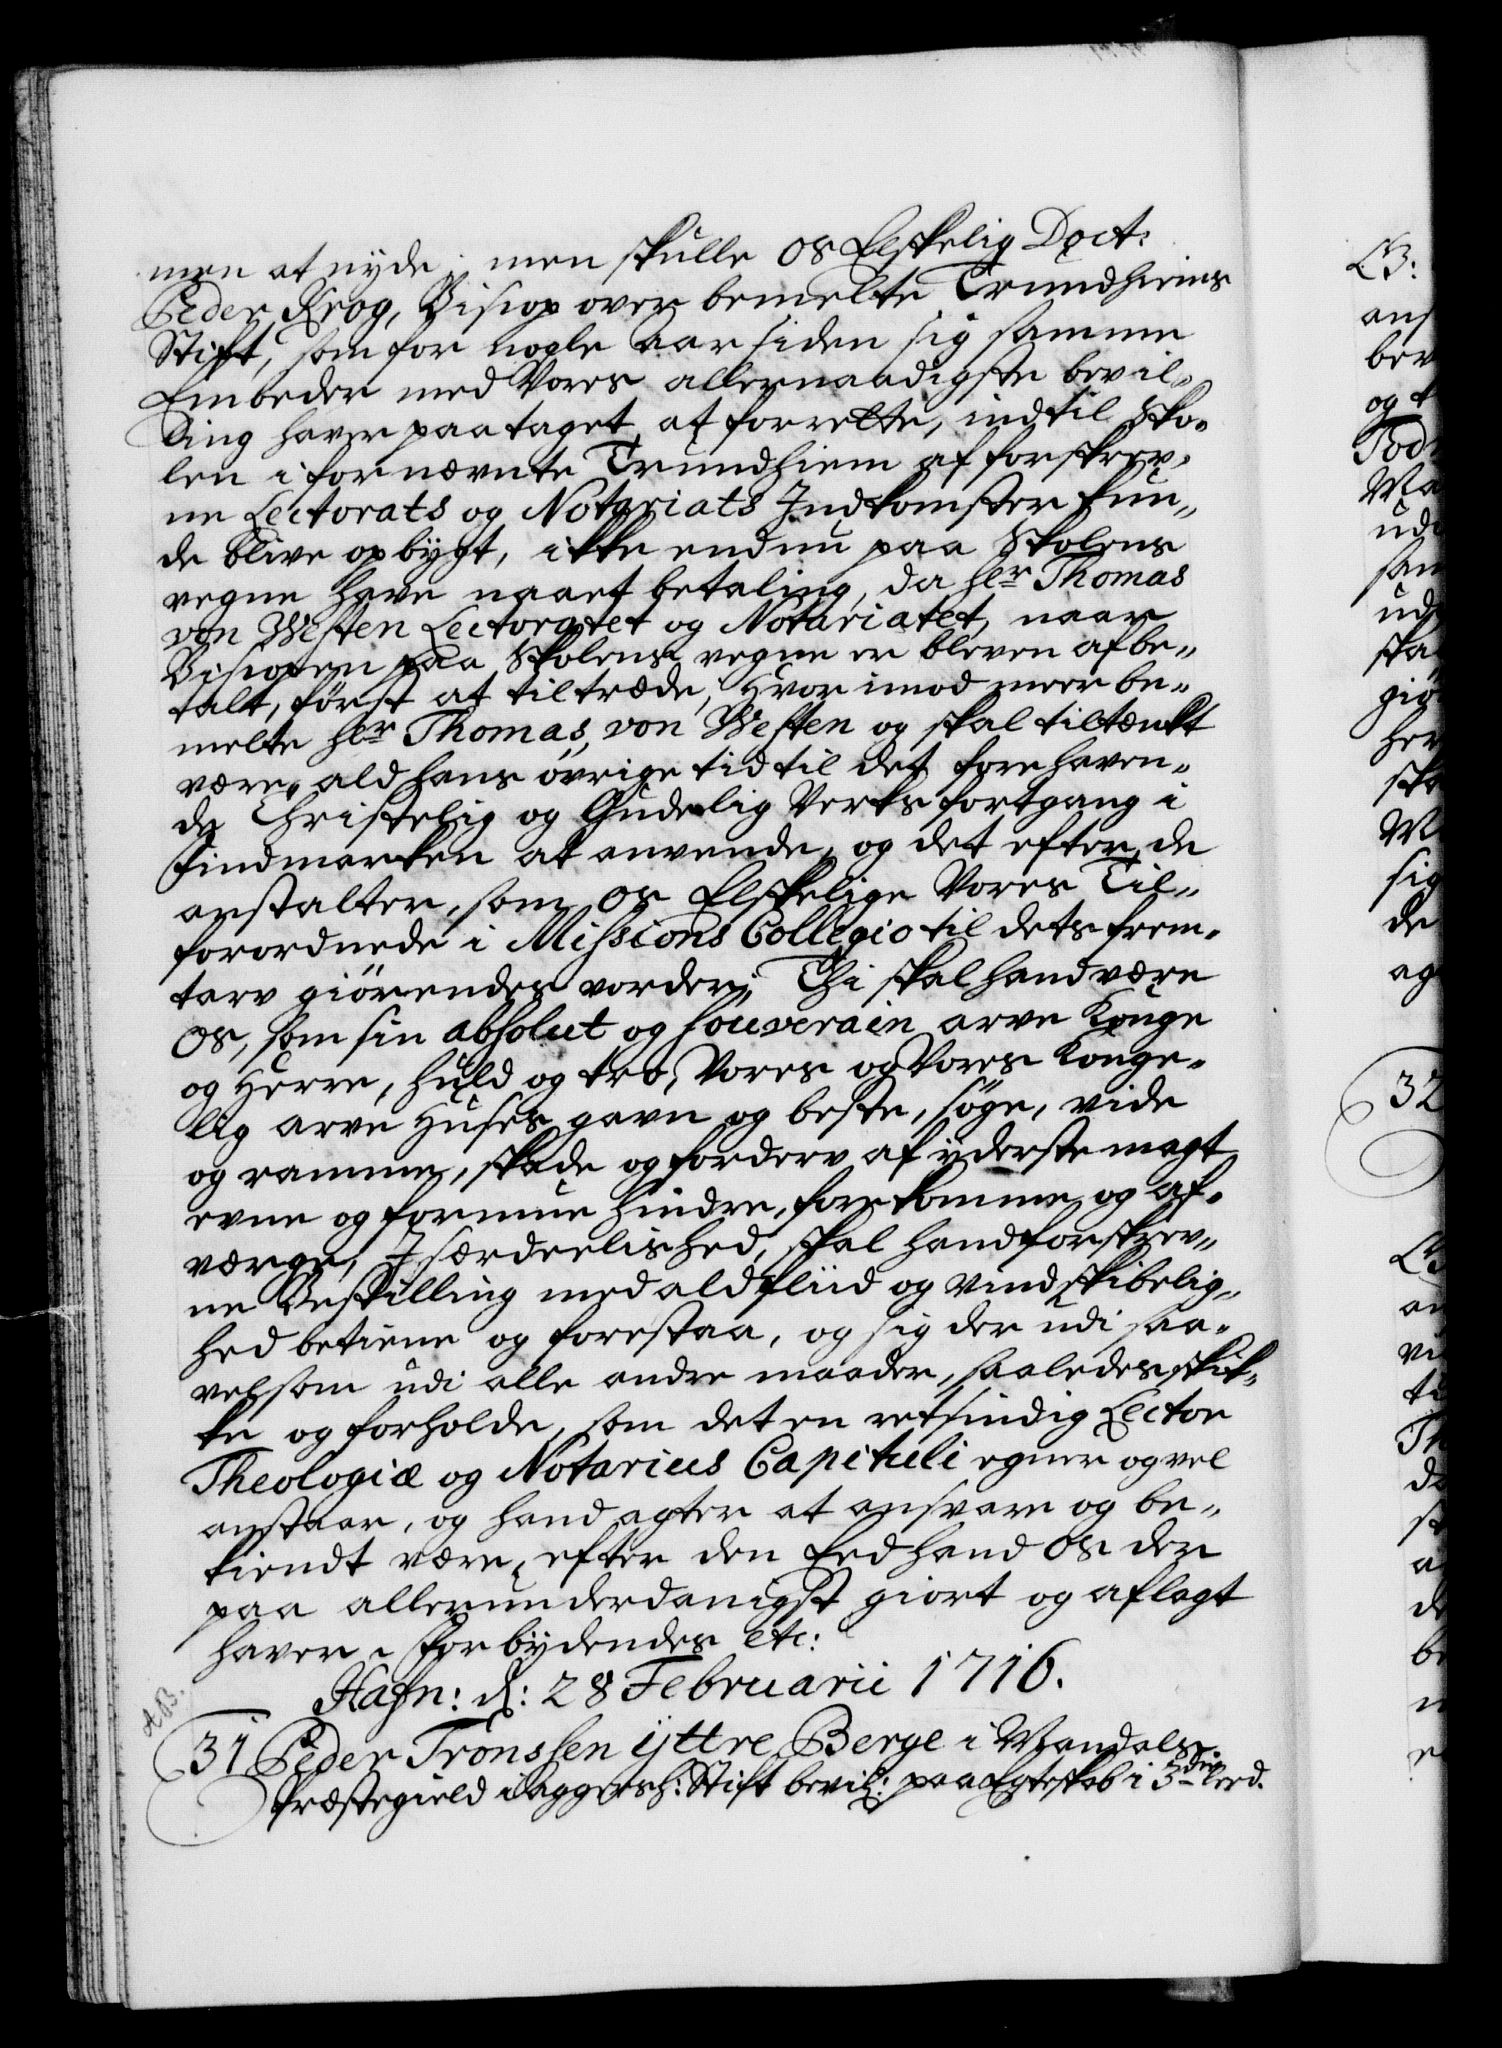 men at nyde; men skulle os Elskelig Doct:
Peder Krog, Bisiop over bemelte Trundhiems
Stift, som for nogle aar siden sig samme
Embeder med Vores allernaadigste bevil„
ling haver paataget at forrette, indtil Sko„
len i fornævnte Trundhiem af forskrev„
ne Lectorats og Notariats Indkomster kun„
de blive opbygt, ikke endnu paa Skolens
vegne have naaet betaling, da hlr Thomas
von Westen Lectoratet og Notariatet, naar
Bisiopen paa Skolens vegne er bleven afbe„
talt, først at tiltræde, Hvorimod meerbe„
melte hlr Thomas von Westen og skal tiltænkt
være, ald hans øvrige tid til det forehaven„
de Christelig og Gudelig Verks fortgang i
Findmarken at anvende, og det efter de
anstalter, som os Elskelige Vores Til„
forordnede i Missions Collegio til dets frem„
tarv giørendes vorder; Thi skal hand være
os, som sin absolut og souverain arve Konge
og Herre, huld og tro, Vores og Vores Konge„
lig arve Huses gavn og beste, søge, vide
og ramme, skade og forderv af yderste magt
evne og formue hindre, forekomme og af„
værge, I særdeelished, skal hand forskrev„
ne Bestilling med ald fliid og vindskibelig„
hed betiene og forestaa, og sig der udi saa„
velsom udi alle andre maader, saaledes skik„
ke og forholde, som det en retsindig Lector
Theologiæ og Notarius Capituli egner og vel
anstaar, og hand agter at ansvare og be„
kiendt være, efter den Eed hand os der
paa allerunderdanigst giort og aflagt
haver. Forbydendes etc:
Hafn: d: 28 Februarii 1716.
31 Peder Tronssen yttre Berge i Mandals
Præstegield i Aggersh: Stift bevil: paa Egteskab i 3die leed.